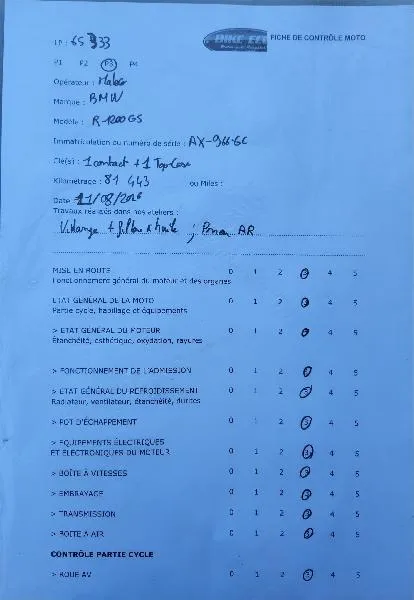 FICHE DE CONTRÔLE MOTO
P1 P2 P3 P4
Opérateur :
Marque : BMW
Modèle : R-1200GS
Immatriculation ou numéro de série : AX-966-GC
Clé(s) : 1 contact + 1 Top Case
Kilométrage : 81 443 ou Miles :
Date 11/08/
Travaux réalisés dans nos ateliers :
Vidange + filtre à huile ; Pneu AR
MISE EN ROUTE 0 1 2 3 4 5
Fonctionnement général du moteur et des organes
ETAT GÉNÉRAL DE LA MOTO 0 1 2 3 4 5
Partie cycle, habillage et équipements
> ETAT GÉNÉRAL DU MOTEUR 0 1 2 3 4 5
Étanchéité, esthétique, oxydation, rayures
> FONCTIONNEMENT DE L'ADMISSION 0 1 2 3 4 5
> ETAT GÉNÉRAL DU REFROIDISSEMENT 0 1 2 3 4 5
Radiateur, ventilateur, étanchéité, durites
> POT D'ÉCHAPPEMENT 0 1 2 3 4 5
> EQUIPEMENTS ÉLECTRIQUES
ET ÉLECTRONIQUES DU MOTEUR 0 1 2 3 4 5
> BOÎTE À VITESSES 0 1 2 3 4 5
> EMBRAYAGE 0 1 2 3 4 5
> TRANSMISSION 0 1 2 3 4 5
> BOITE A AIR 0 1 2 3 4 5
CONTRÔLE PARTIE CYCLE
> ROUE AV 0 1 2 3 4 5